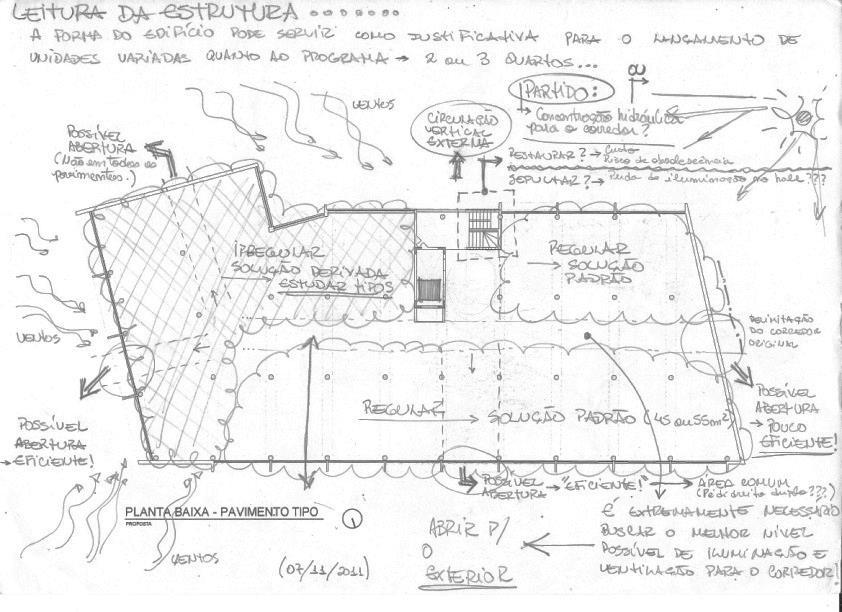 LEITURA DA ESTRUTURA
A FORMA DO EDIFÍCIO PODE SERVIR COMO JUSTIFICATIVA PARA O LANÇAMENTO DE
UNIDADES VARIADAS QUANTO AO PROGRAMA → 2 ou 3 QUARTOS...
PARTIDO:
→ Concentração hidráulica
para o corredor?
VENTOS
CIRCULAÇÃO
VERTICAL
EXTERNA
RESTAURAR? → Custo
Risco de obsolescência
SEPULTAR? → Perda de iluminação no hall???
POSSÍVEL
ABERTURA
(Não em todos os
pavimentos.)
IRREGULAR
SOLUÇÃO DERIVADA
ESTUDAR TIPOS
REGULAR
→ SOLUÇÃO
PADRÃO
VENTOS
DELIMITAÇÃO
DO CORREDOR
ORIGINAL
REGULAR → SOLUÇÃO PADRÃO (45 ou 55m²)
POSSÍVEL
ABERTURA
→ POUCO
EFICIENTE!
POSSÍVEL
ABERTURA
→ EFICIENTE!
POSSÍVEL
ABERTURA → "EFICIENTE!"
→ ÁREA COMUM
(Pé direito duplo???)
PLANTA BAIXA - PAVIMENTO TIPO
PROPOSTA
É EXTREMAMENTE NECESSÁRIO
BUSCAR O MELHOR NÍVEL
POSSÍVEL DE ILUMINAÇÃO E
VENTILAÇÃO PARA O CORREDOR!
ABRIR P/
O
EXTERIOR
VENTOS
(07/11/2011)